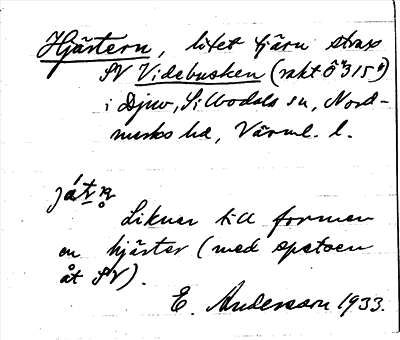 Hjärtern, litet tjärn strax
SV Videbusken (rakt Ö "315")
i Djuv, Silbodals sn, Nord-
marks hd, Värml. l.
Liknar till formen
en hjärter (med spetsen
åt SV).
E. Andersson 1933.